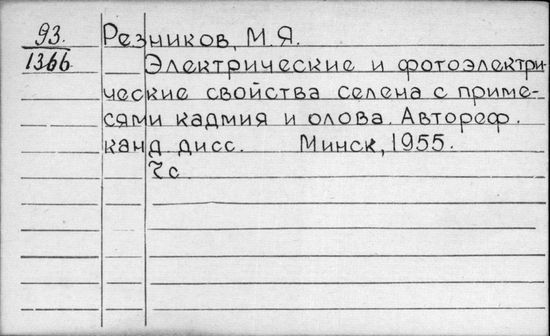 93. Резников, М.Я.
1366 Электрические и фотоэлектри-
ческие свойства селена с приме-
сями кадмия и олова. Автореф.
канд. дисс. Минск, 1955.
7с